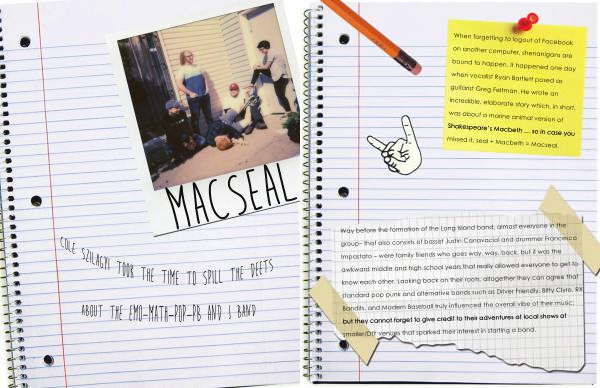 MACSEAL
COLE SZILAGYI TOOK THE TIME TO SPILL THE DEETS
ABOUT THE EMO-MATH-POP-PB AND J BAND
When forgetting to logout of Facebook
on another computer, shenanigans are
bound to happen. It happened one day
when vocalist Ryan Bartlett posed as
guitarist Greg Feltman. He wrote an
incredible, elaborate story which, in short,
was about a marine animal version of
Shakespeare's Macbeth ... so in case you
missed it, seal + Macbeth = Macseal.
Way before the formation of the Long Island band, almost everyone in the
group- that also consists of bassist Justin Canavaciol and drummer Francesca
Impastato – were family friends who goes way, way, back, but it was the
awkward middle and high school years that really allowed everyone to get to
know each other. Looking back on their roots, altogether they can agree that
standard pop punk and alternative bands such as Driver Friendly, Biffy Clyro, RX
Bandits, and Modern Baseball truly influenced the overall vibe of their music;
but they cannot forget to give credit to their adventures at local shows at
smaller/DIY venues that sparked their interest in starting a band.